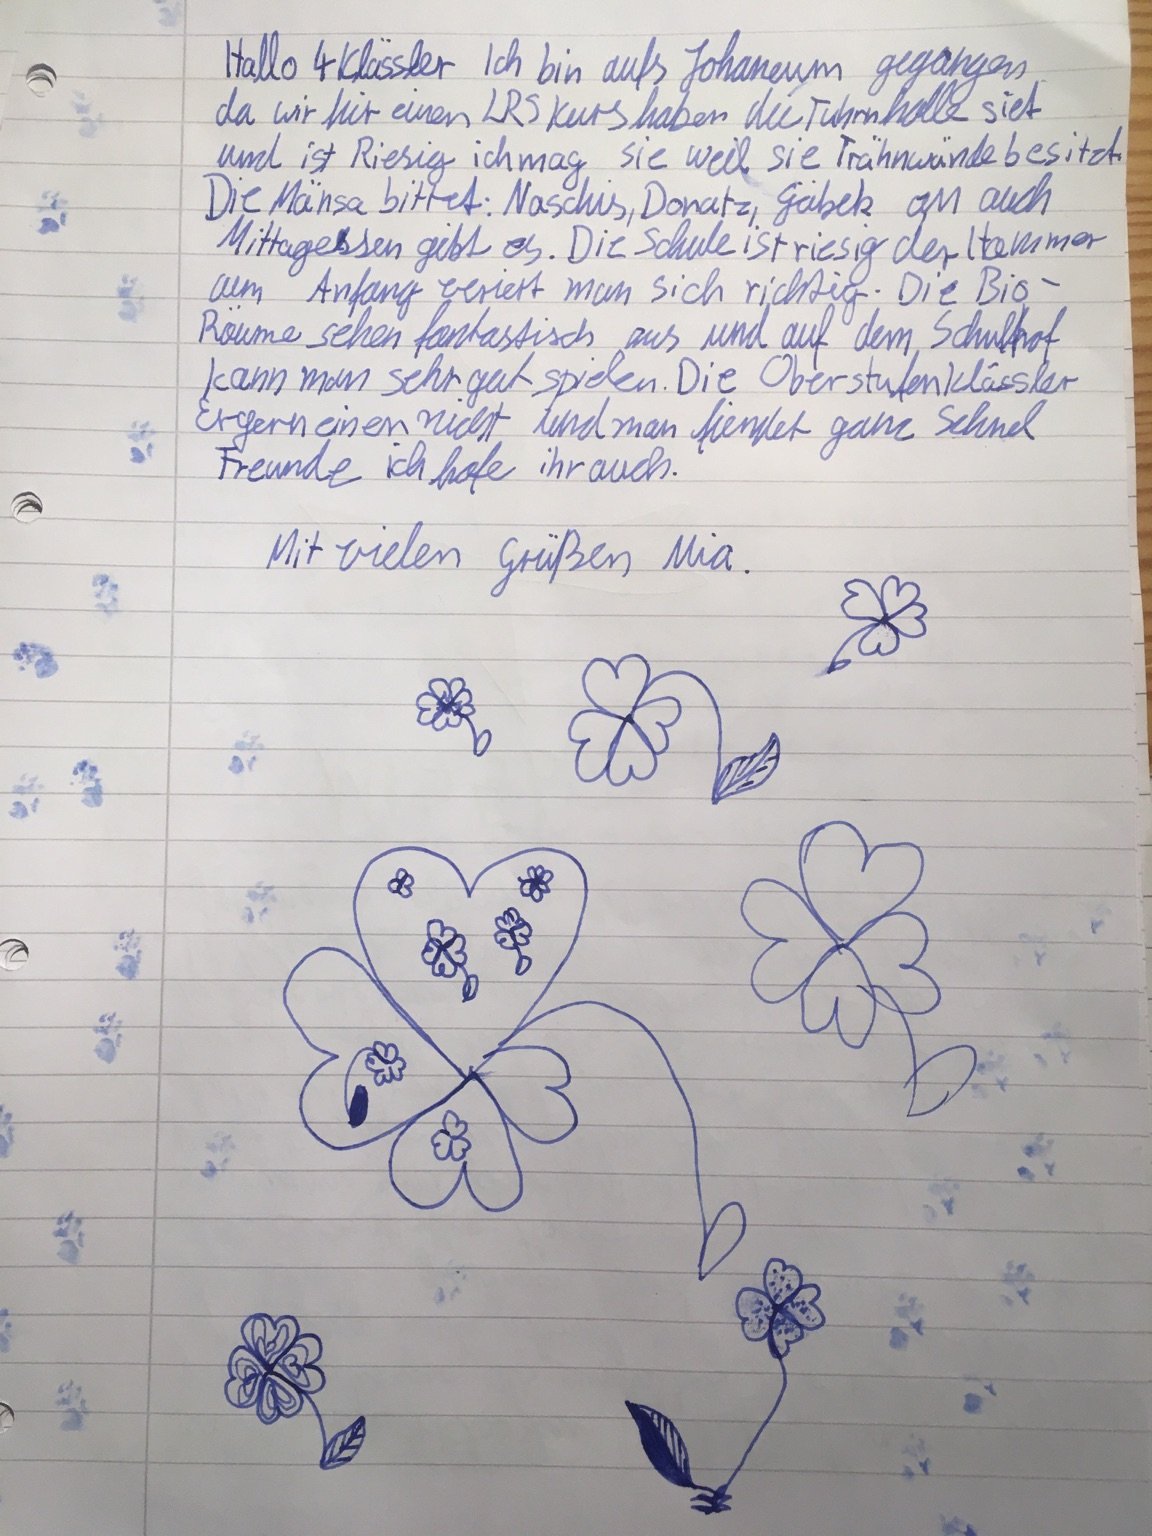 Hallo 4 Klässler Ich bin aufs Johaneum gegangen
da wir hir einen LRS kurs haben die Tuhrnhalle siet
und ist Riesig ich mag sie weil sie Trähnwände besitzt.
Die Mänsa bittet: Naschis, Donatz, Gäbek am auch
Mittagessen gibt es. Die Schule ist riesig der Hammer
am Anfang veriert man sich richtig. Die Bio-
Räume sehen fantastisch aus und auf dem Schulhof
kann man sehr gut spielen. Die Oberstufenklässler
Ergern einen nicht und man fiendet ganz Schnel
Freunde ich hofe ihr auch.
Mit vielen Grüßen Mia.